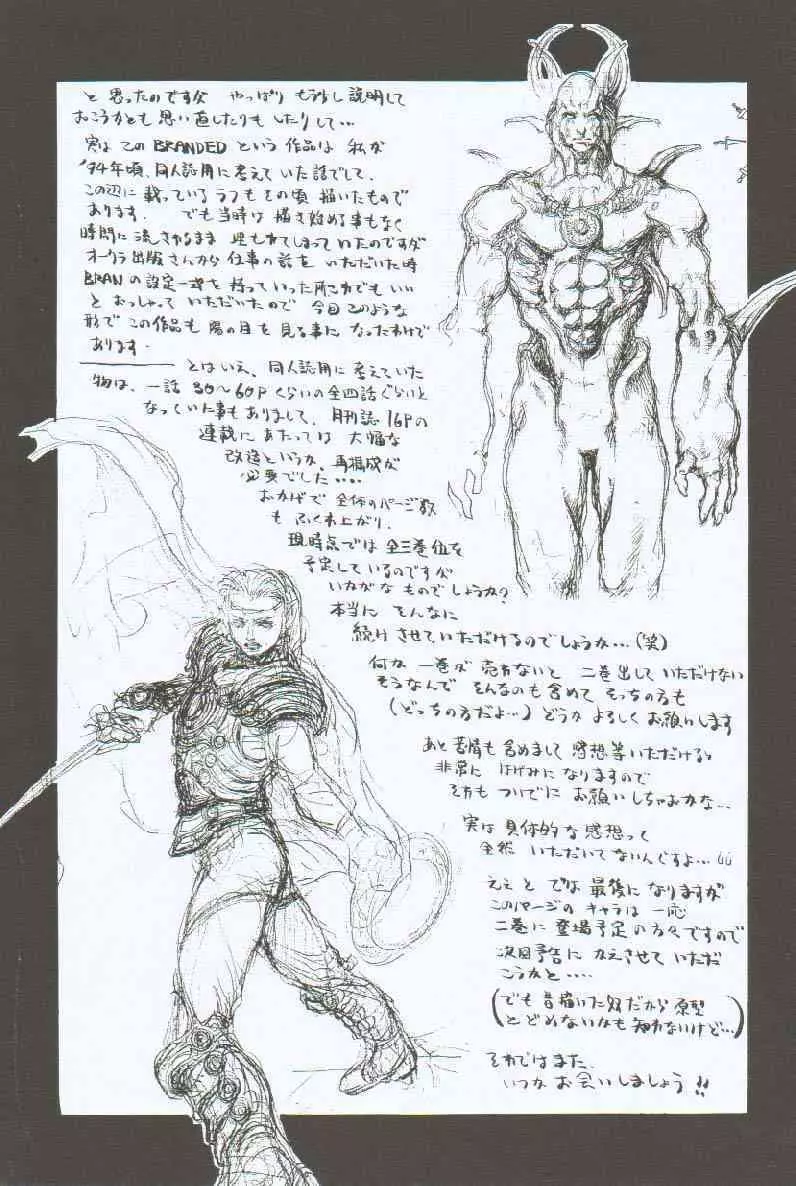 と思ったのですが やっぱり もう少し説明して
おこうかとも思い直したりもしたりして…
実はこのBRANDEDという作品は 私が
'94年頃、同人誌用に考えていた話でして、
この辺に載っているラフもその頃描いたもので
あります. でも当時は描き始める事もなく
時間に流されるまま 埋もれてしまっていたのですが
オークラ出版さんから仕事の話をいただいた時
BRANの設定一式を持っていった所これでもいい
とおっしゃっていただいたので 今回このような
形でこの作品も陽の目を見る事になったわけで
あります.
とはいえ、同人誌用に考えていた
物は、一話30〜60Pくらいの全四話ぐらいと
なっていた事もありまして、月刊誌16Pの
連載にあたっては 大幅な
改造というか、再構成が
必要でした….
おかげで全体のページ数
もふくれ上がり、
現時点では全三巻位を
予定しているのですが
いかがなものでしょうか?
本当に そんなに
続けさせていただけるのでしょうか…(笑)
何か 一巻が売れないと 二巻出していただけない
そうなんで そんなのも含めて そっちの方も
(どっちの方だよ…) どうか よろしく お願いします
あと苦情も含めまして 感想等いただけると
非常に はげみになりますので
それも ついでに お願いしちゃおかな…
実は具体的な感想って
全然 いただいてないんですよ…
ええと では 最後になりますが
このページの キャラは 一応
二巻に登場予定の方々ですので
次回予告に かえさせて いただ
こうかと….
(でも昔描いた奴だから原型
とどめないかも知れないけど…)
それではまた、
いつか お会いしましょう!!